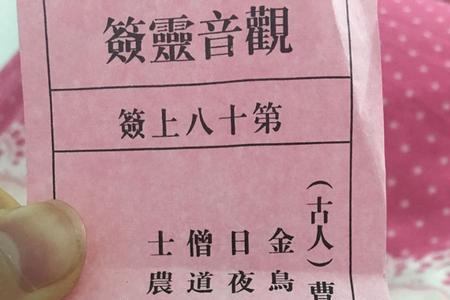 觀音靈簽
第十八上簽
（古人）曹
金烏
日夜
僧道
士農